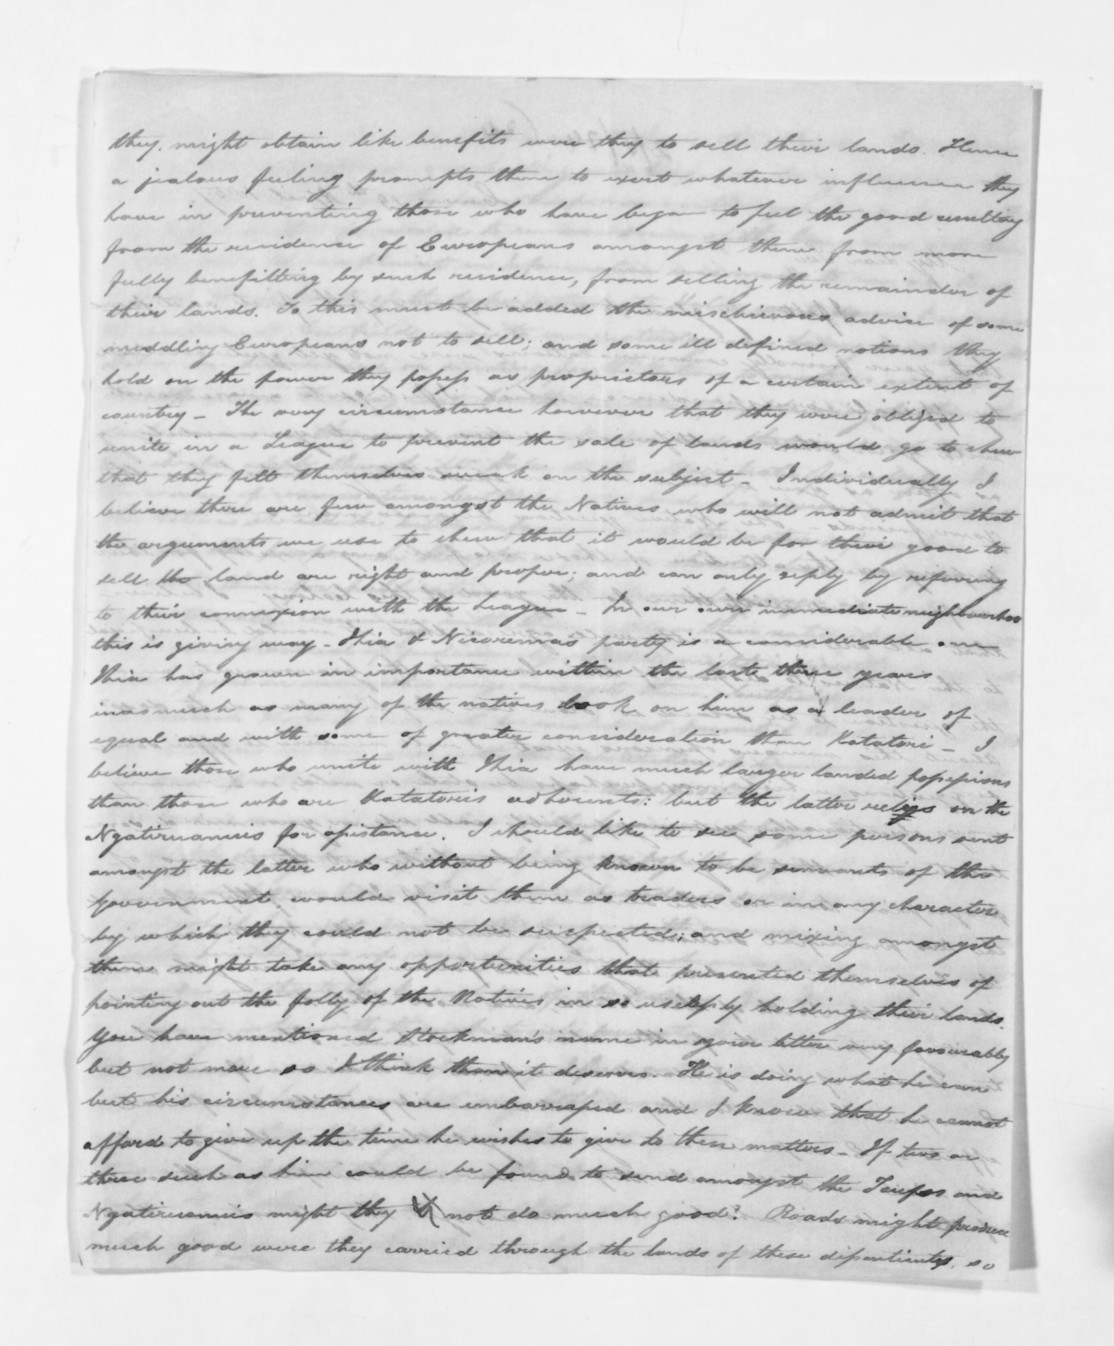 they. might obtain like benefits were they to sell their lands. Hence
a jealous feeling prompts them to exert whatever influence they
have in preventing those who have began to feel the good resulting
from the residence of Europeans amongst them from more
fully benefitting by such residence, from selling the remainder of
their lands. To this must be added the mischievous advise of some
meddling Europeans not to sell; and some ill defined notions they
hold on the power they possess as proprietors of a certain extent of
country - The very circumstance however that they were obliged to
unite in a League to prevent the sale of lands would go to shew
that they felt themselves weak on the subject - Individually I
believe there are few amongst the Natives who will not admit that
the arguments we use to shew that it would be for their good to
sell the land are right and proper; and can only reply by referring
to their connexion with the League - In our own immediate neighbourhoo
this is giving way - Ihia & Nicorema's party is a considerable one
Ihia has grown in importance within the last three years
inasmuch as many of the natives look on him as a leader of
equal and with some of greater consideration than Katatori - I
believe those who unite with Ihia have much larger landed possessions
than those who are Katatoris adherents: but the latter relys on the
Ngatiruanuis for assistance. I should like to see some persons sent
amongst the latter who without being known to be servants of the
Government would visit them as traders or in any character
by which they could not be suspected; and mixing amongst
them might take any opportunities that presented themselves of
pointing out the folly of the Natives in so uselessly holding their lands.
You have mentioned Stockman's name in your letter very favourably
but not more so I think than it deserves. He is doing what he can
but his circumstances are embarrassed and I know that he cannot
afford to give up the time he wishes to give to these matters - If two or
three such as him could be found to send amongst the Taupos and
Ngatiruanuis might they not do much good? Roads might produce
much good were they carried through the lands of these dissentients, so